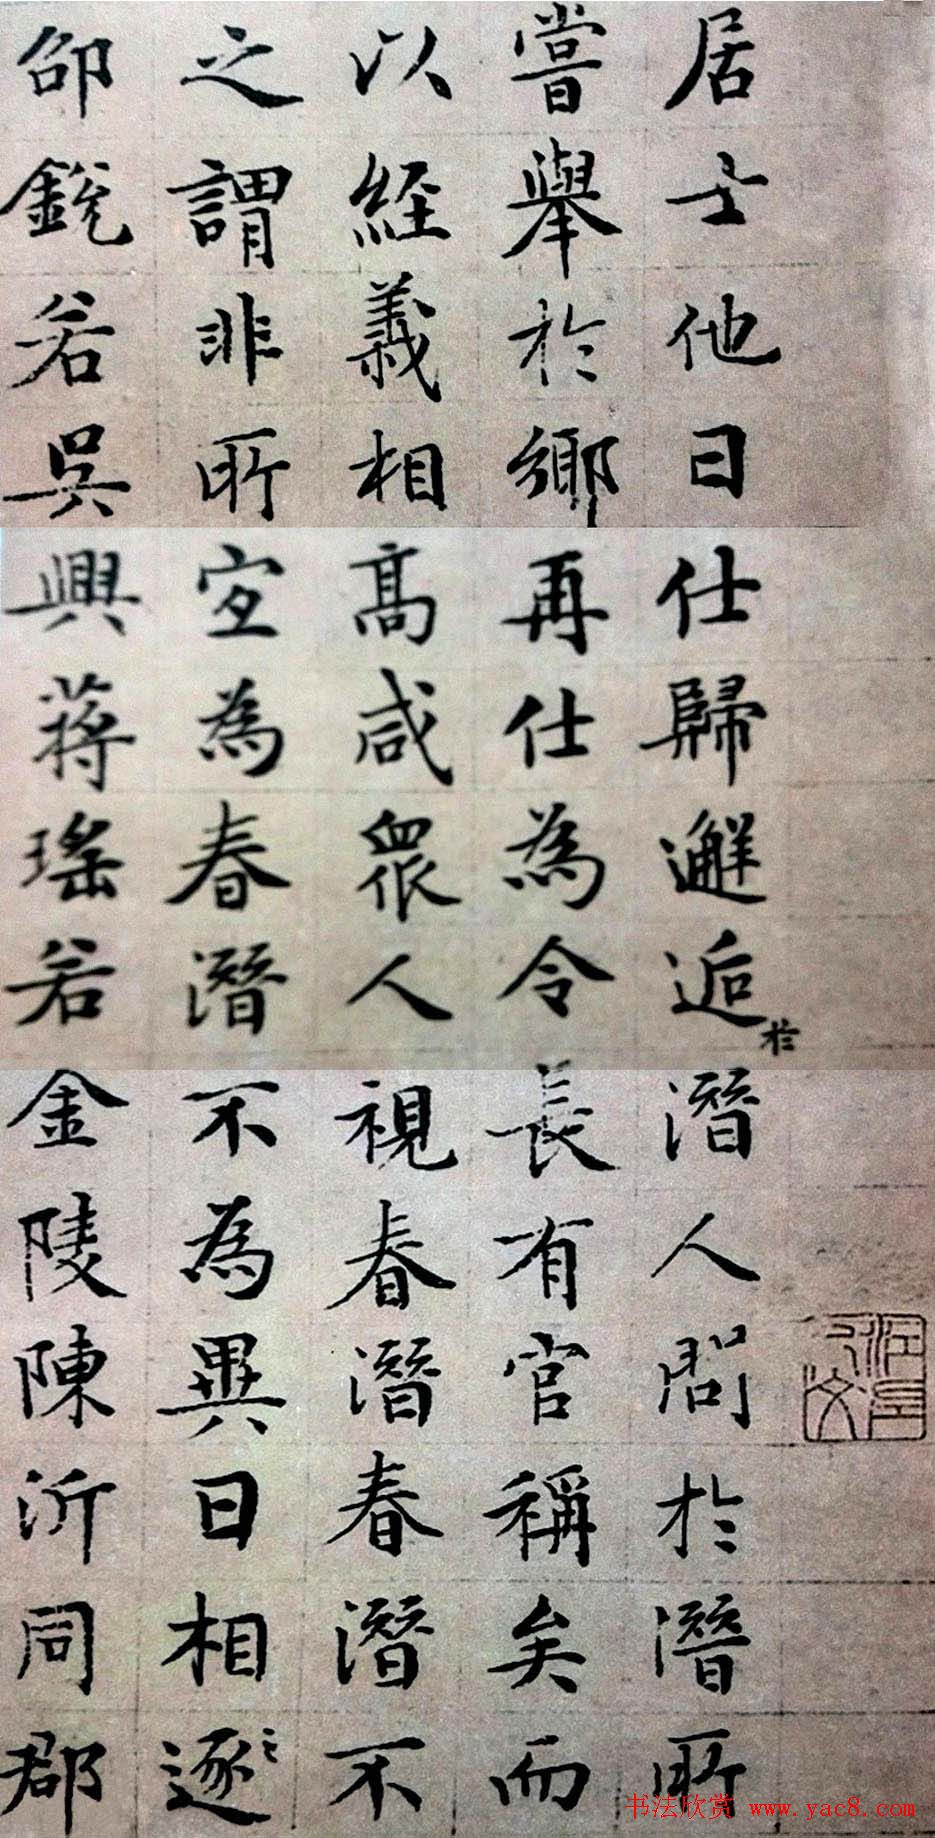 居士他日仕歸邂逅於潛人問於潛所
嘗舉於鄉再仕為令長有官稱矣而
以經義相高咸眾人視春潛春潛不
之謂非所宜為春潛不為異日相逐
邵銳若吳興蔣瑤若金陵陳沂同郡
书法欣赏 www.yac8.com